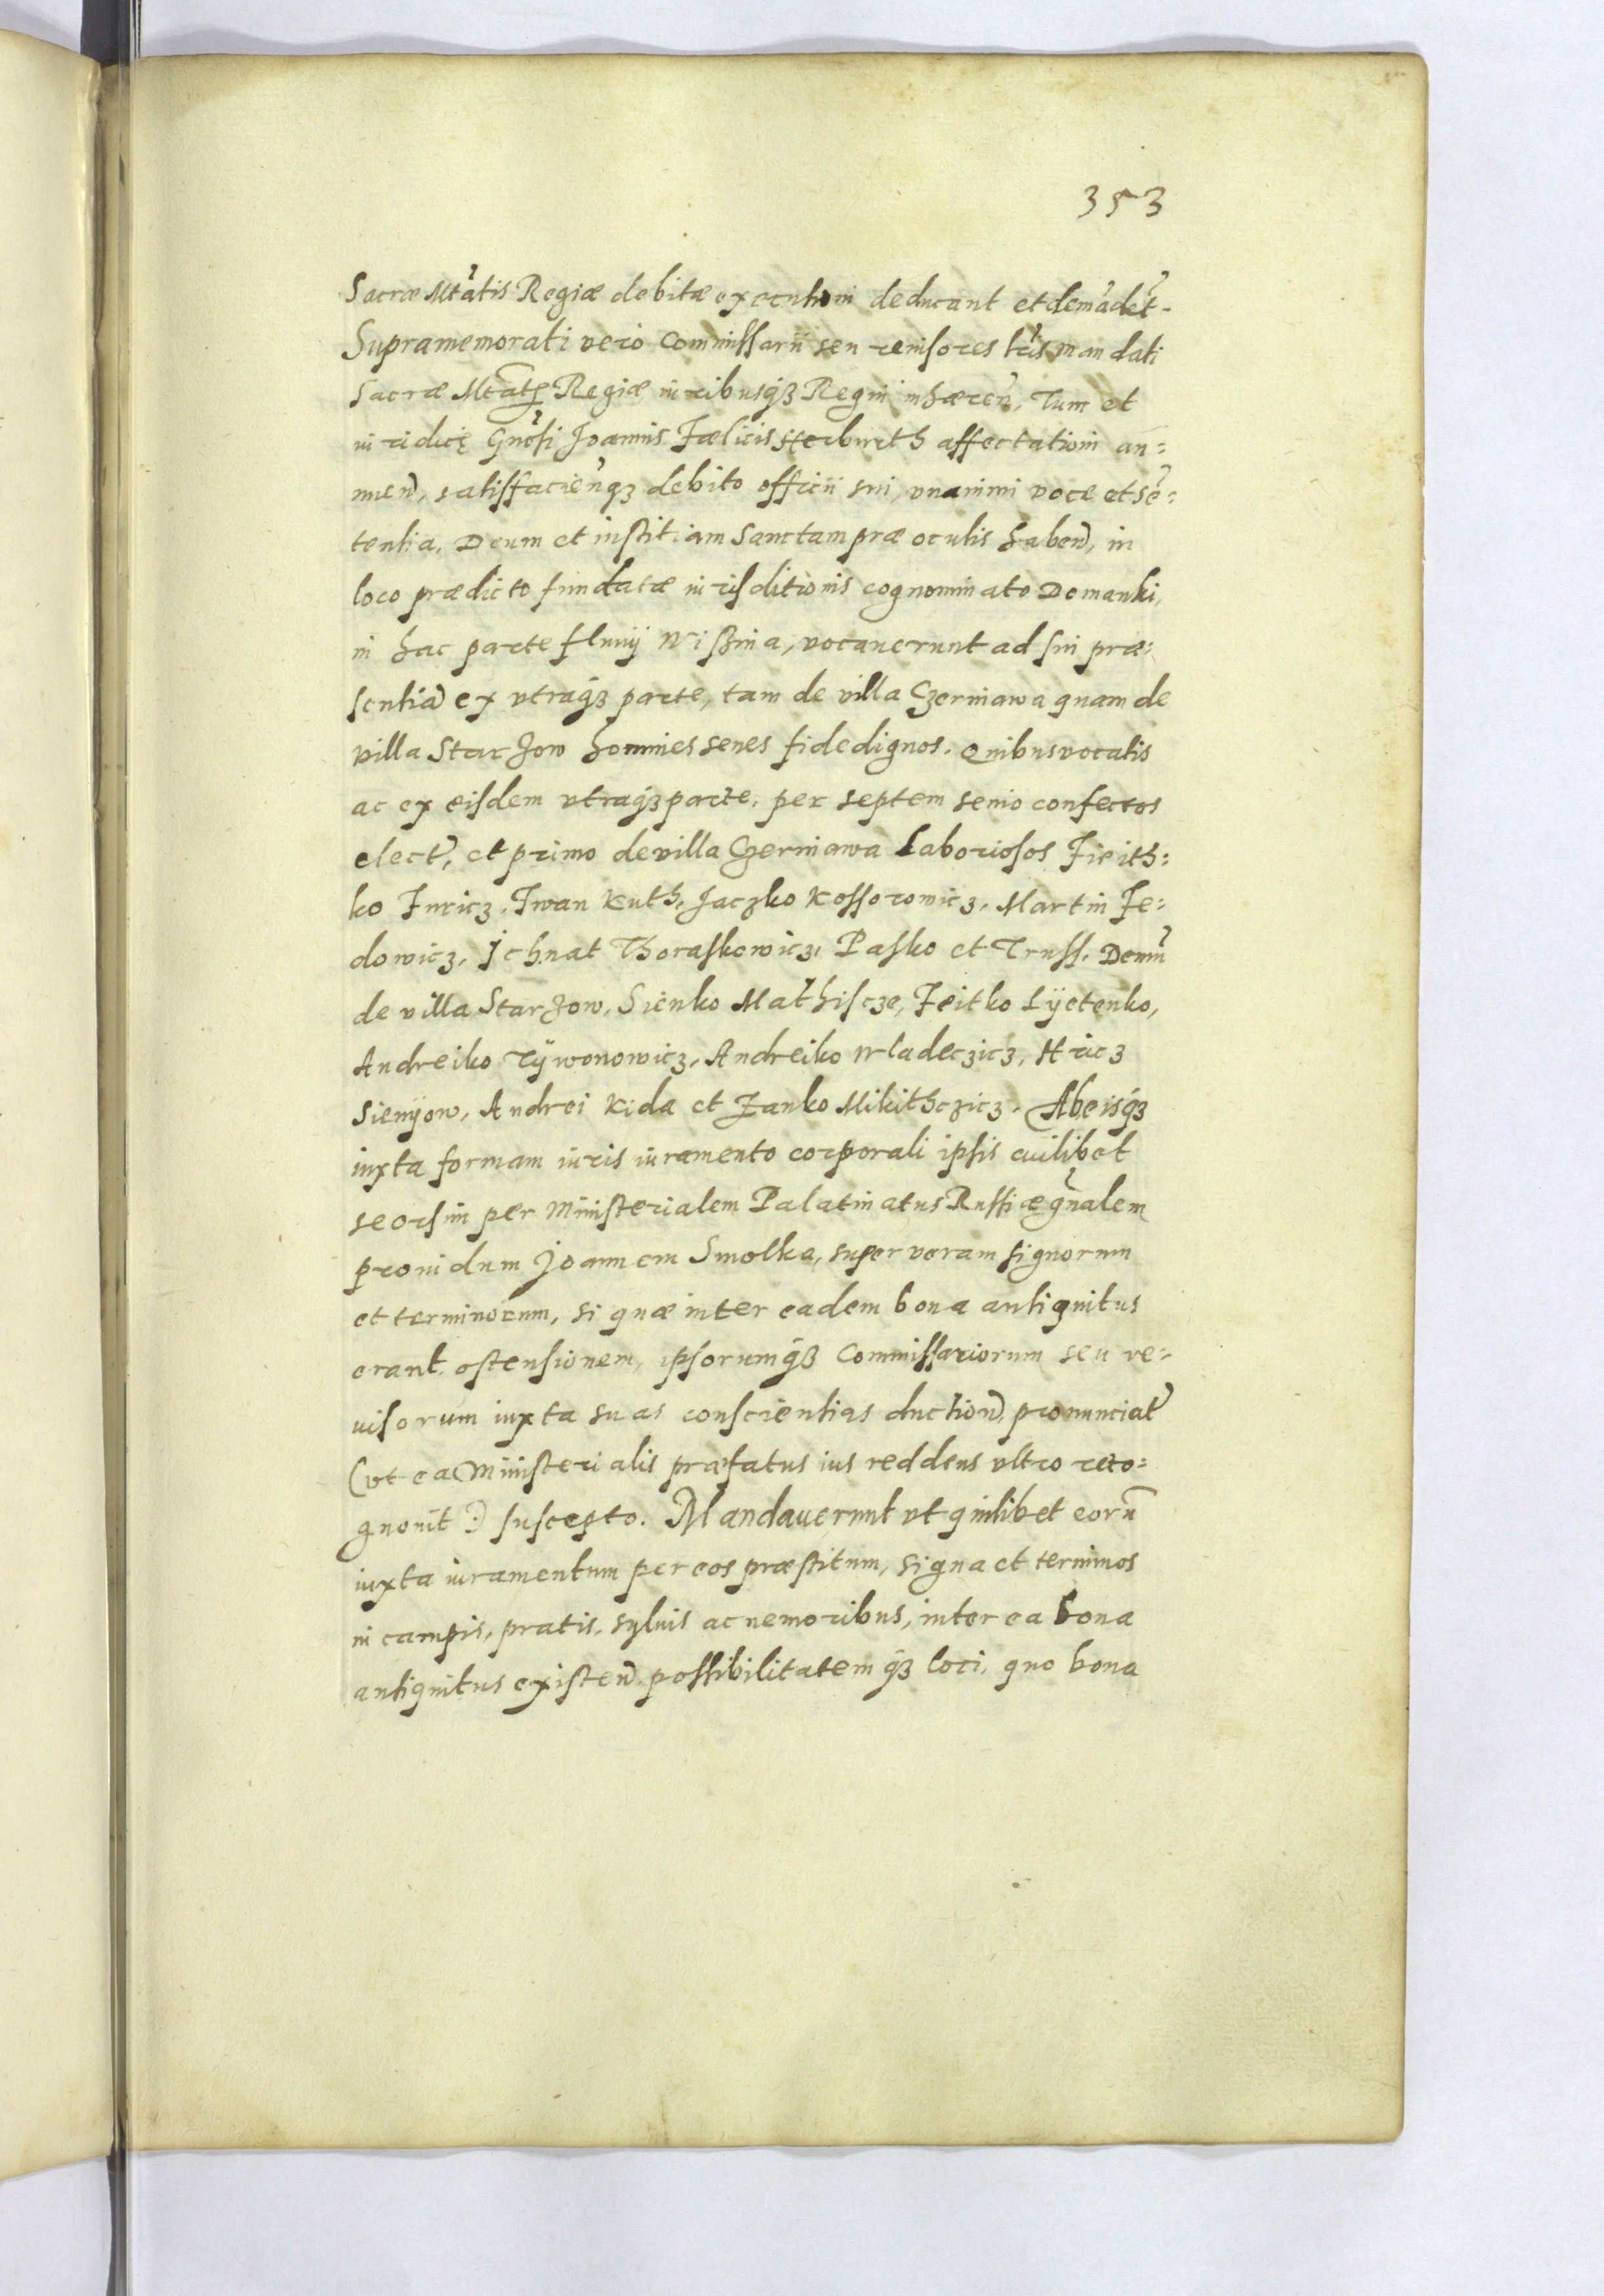 353
Sacræ Mtatis Regiæ debitæ executioni deducant et demadēt.
Supramemorati vero Commissarii seu reuisores lris mandati
Sacræ Mtatis Regiæ iuribusq3 Regni inhæren, Tum et
iuridicę Gnosi Joannis Fœlicis Herburth affectationi an:
nuen, satisfacienq3 debito officii sui, vnanimi voce et sē:
tentia, Deum et iustitiam Sanctam præ oculis haben, in
loco prædicto fundatæ iurisditionis cognominato Domanki,
in hac parte fluuij Wiszina, vocauerunt ad sui præ:
sentiā ex vtraq3 parte, tam de villa Czerniawa quam de
villa StarJow homines senes fidedignos. Quibus vocatis
ac ex eisdem vtraq3 parte, per septem senio confectos
elect, et primo de villa Czerniawa Laboriosos Fieith:
ko Juricz, Iwan Kuth, Jaczko Kossorowicz, Martin Fe:
dowicz, Jchnat Thoraskowicz, Pasko et Truss. Demū
de villa StarJow, Sienko Mathiscze, Feitko Lÿetenko,
Andreiko Tÿwonowicz, Andreiko Wladeczicz, Hricz
Sienÿow, Andrei Kida et Janko Mikithczicz. Ab eisq3
iuxta formam iuris iuramento corporali ipsis cuilibet
seorsim per Ministerialem Palatinatus Russiæ gnalem
prouidum Joannem Smolka, super veram signorum
et terminorum, si quæ inter eadem bona antiquitus
erant, ostensionem, ipsorumq3 Commissariorum seu re:
uisorum iuxta suas conscientias duction, pronunciat
(vt ea Ministerialis præfatus ius reddens vltro reco:
gnouit :) suscepto. Mandauerunt vt quilibet eorū
iuxta iuramentum per eos præstitum, signa et terminos
in campis, pratis, syluis ac nemoribus, inter ea bona
antiquitus existen possibilitatem q3 loci, quo bona